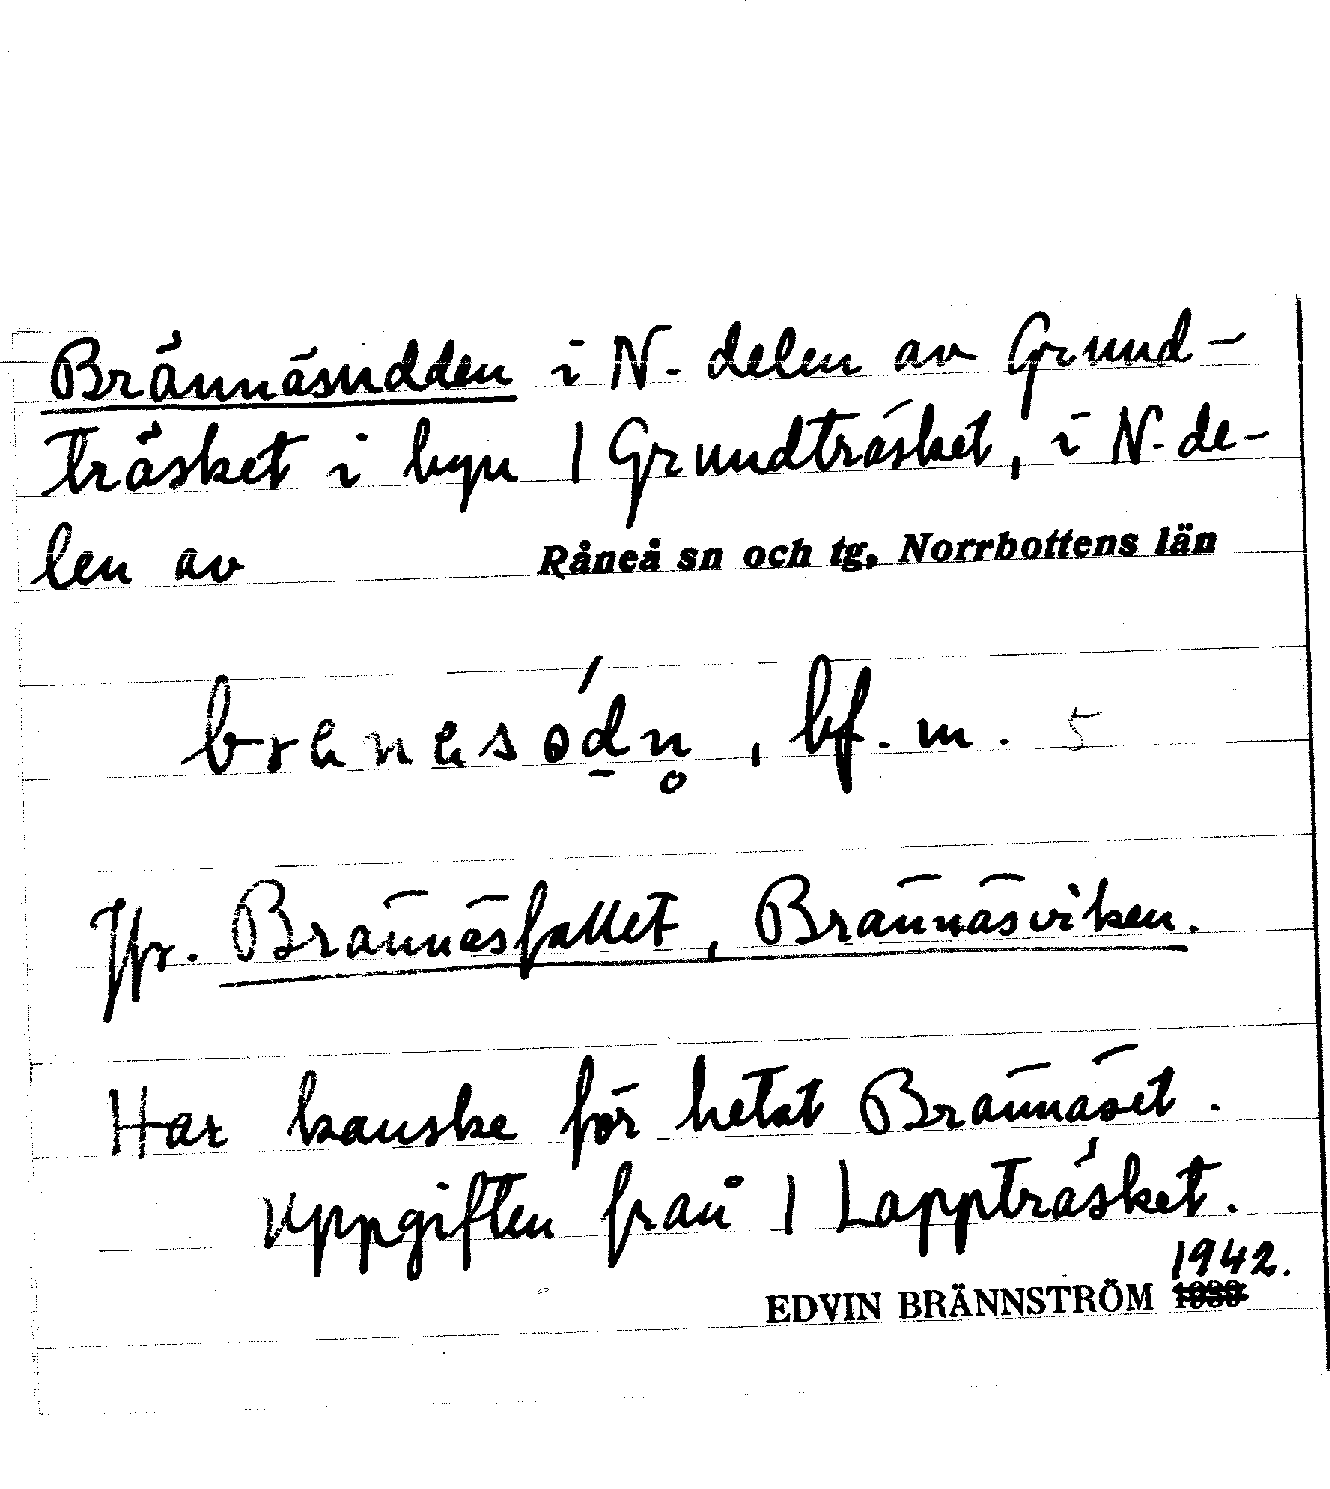 Brännäsudden i N. delen av Grund-
träsket i byn 1 Grundträsket, i N. de-
len av Råneå sn och tg, Norrbottens län
bf. m. 5
Jfr. Brännäsfallet, Brännäsviken.
Har kanske förr hetat Brännäset.
Uppgiften från 1 Lappträsket.
1942.
EDVIN BRÄNNSTRÖM 1930